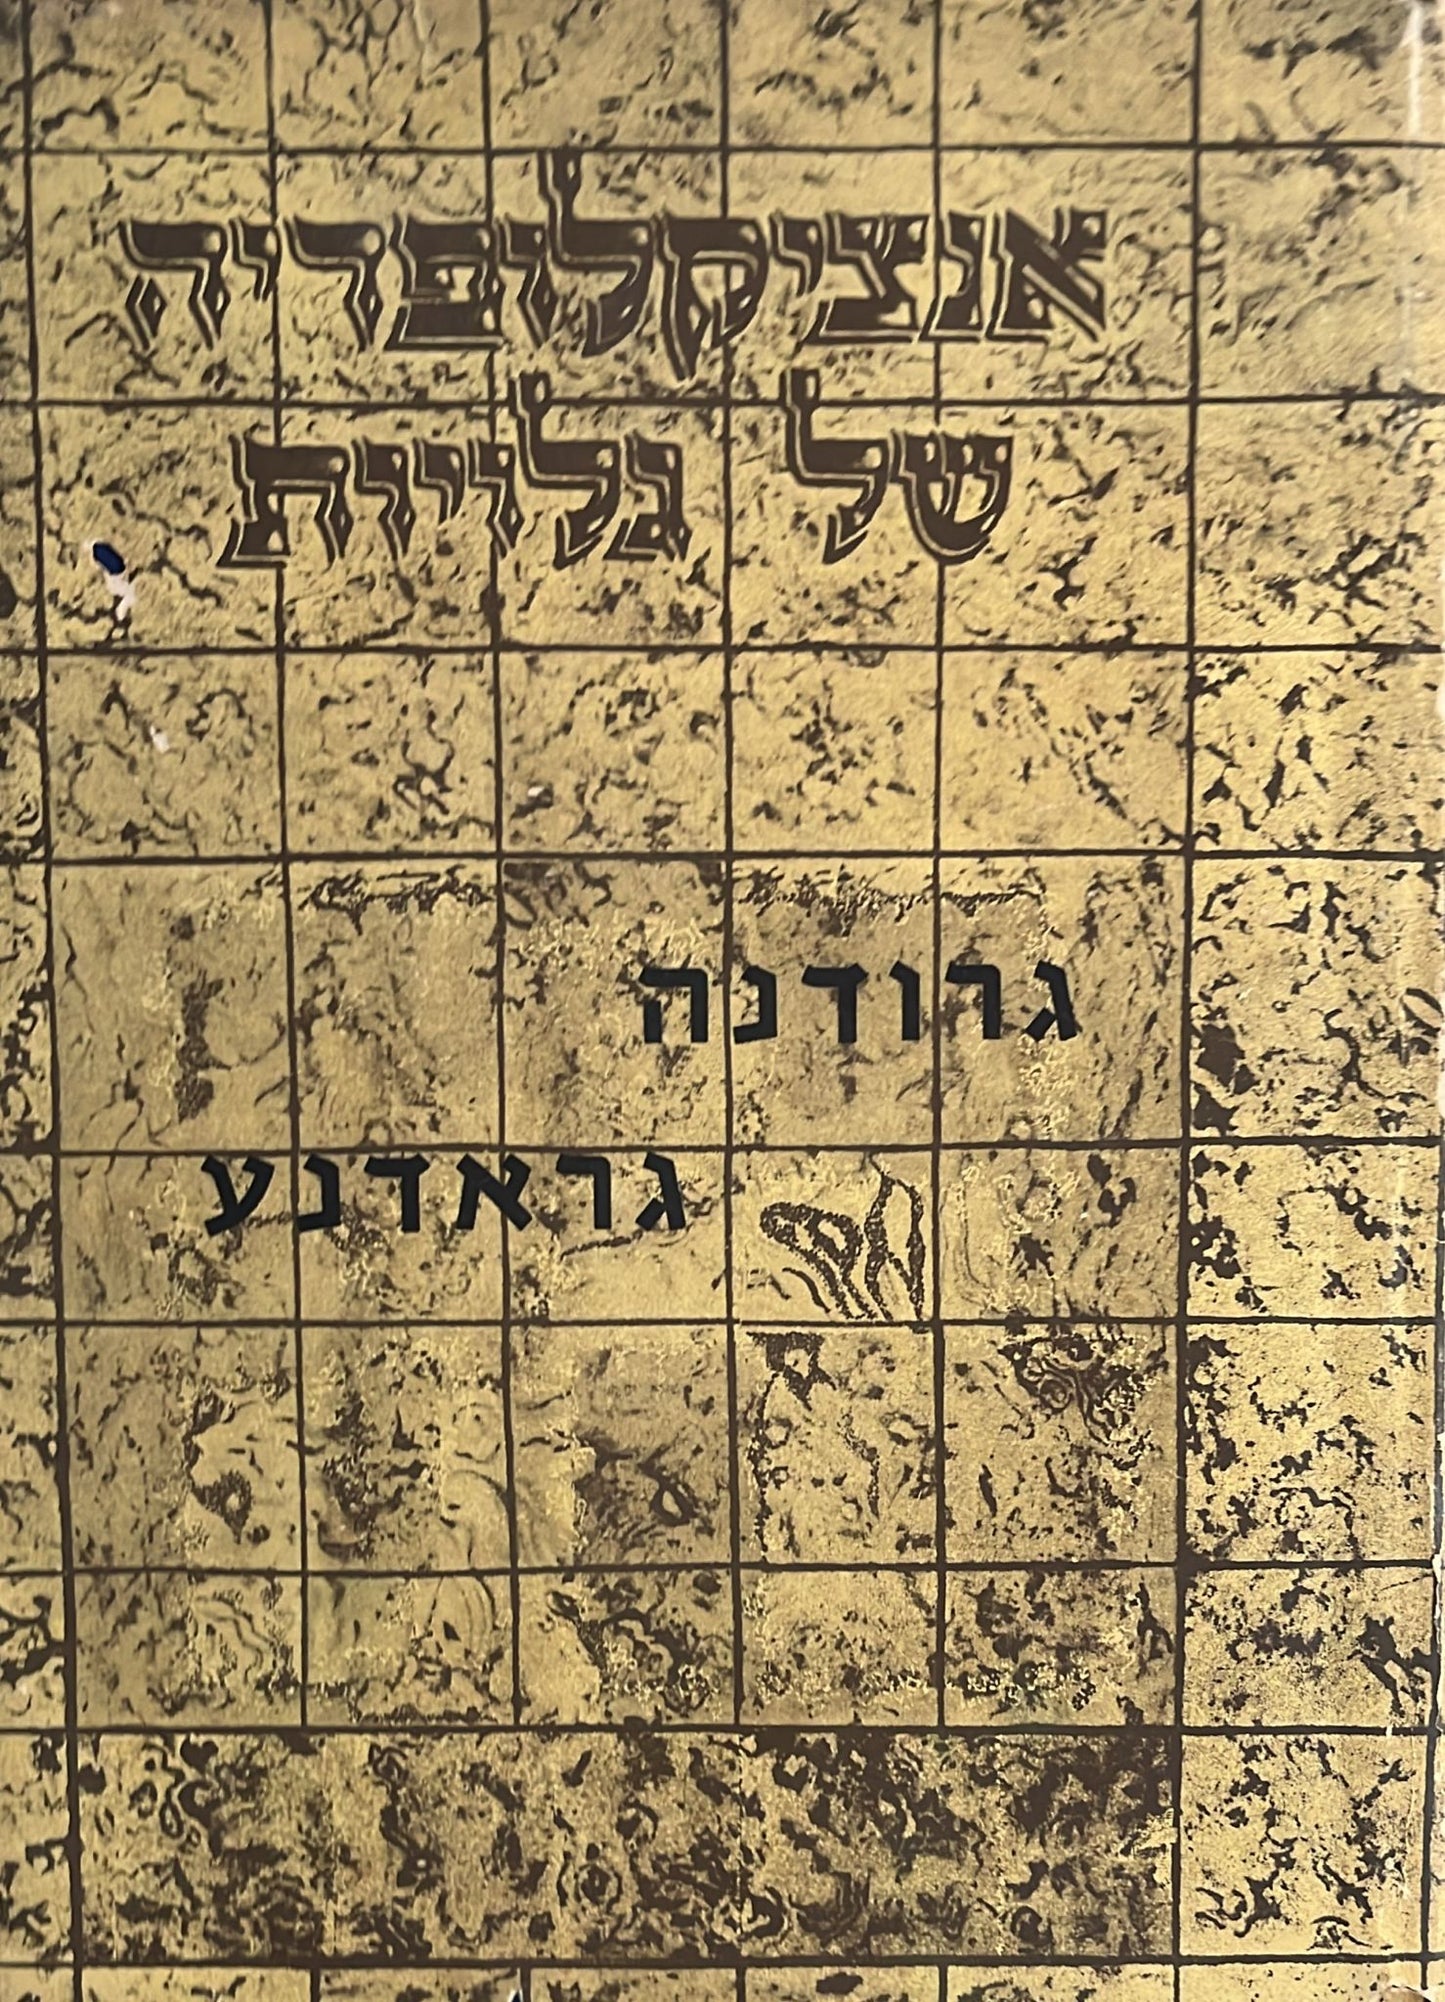 אנציקלופדיה
של גלויות
גרודנה
גראדנע